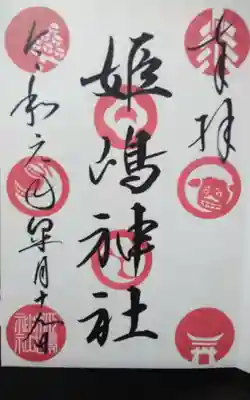 奉拝
姫嶋神社
令和元年皐月十日